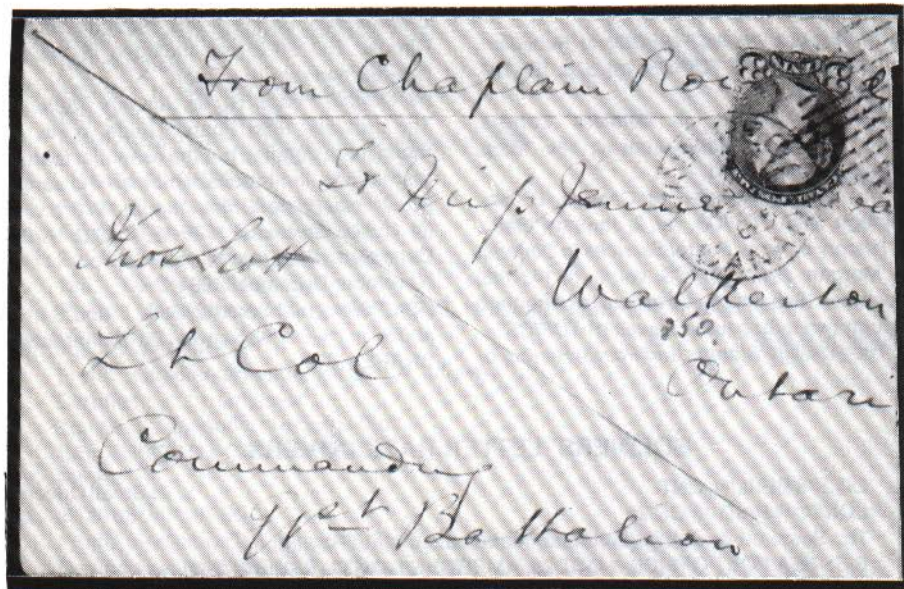 From Chaplain
To Miss Jennie
Walkerton
Ontari
Thos Scott
Lt Col
Commanding
Battalion